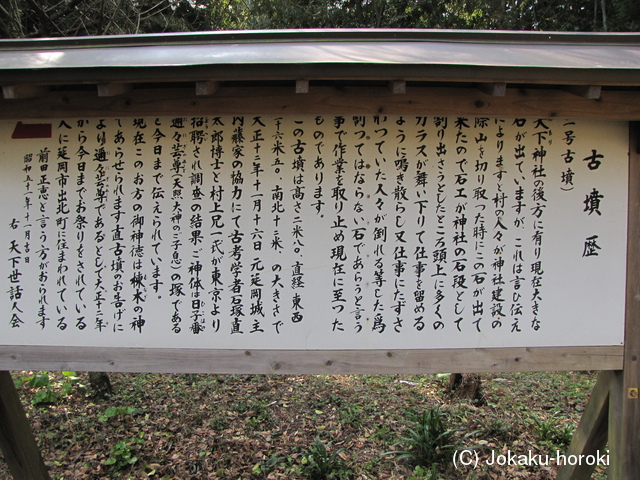 古墳歴
(一号古墳)
天下神社の後方に有り現在大きな
石が出ていますが、これは言ひ伝え
によりますと村の人々が神社建設の
際山を切り取った時にこの石が出て
来たので石工が神社の石段として
割り出さうとしたところ頭上に多くの
カラスが舞い下りて仕事を留める
ように鳴き散らし又仕事にたずさ
わつていた人々が倒れる等した為
割つてはならない石であらうと言う
事で作業を取り止め現在に至つた
ものであります。
この古墳は高さ二米八〇。直経、東西
二十六米五。南北二十三米、の大きさで
大正十二年十一月十六日元延岡城主
内藤家の協力にて古考学者石塚直
太郎博士と村上兄一氏が東京より
招聘され調査の結果ご神体は日子番
邇々芸尊(天照大神のご子息)の塚である
と今日まで伝えられています。
現在このお方の御神徳は榊木の神
であらせられます直古墳のお告げに
より邇々芸尊であるとして大正十二年
から今日までお祭りをされている
人に延岡市出北町に住まわれている
前田正恵と言う方がおられます
昭和五十二年十一月吉日
右 天下世話人会
(C) Jokaku-horoki